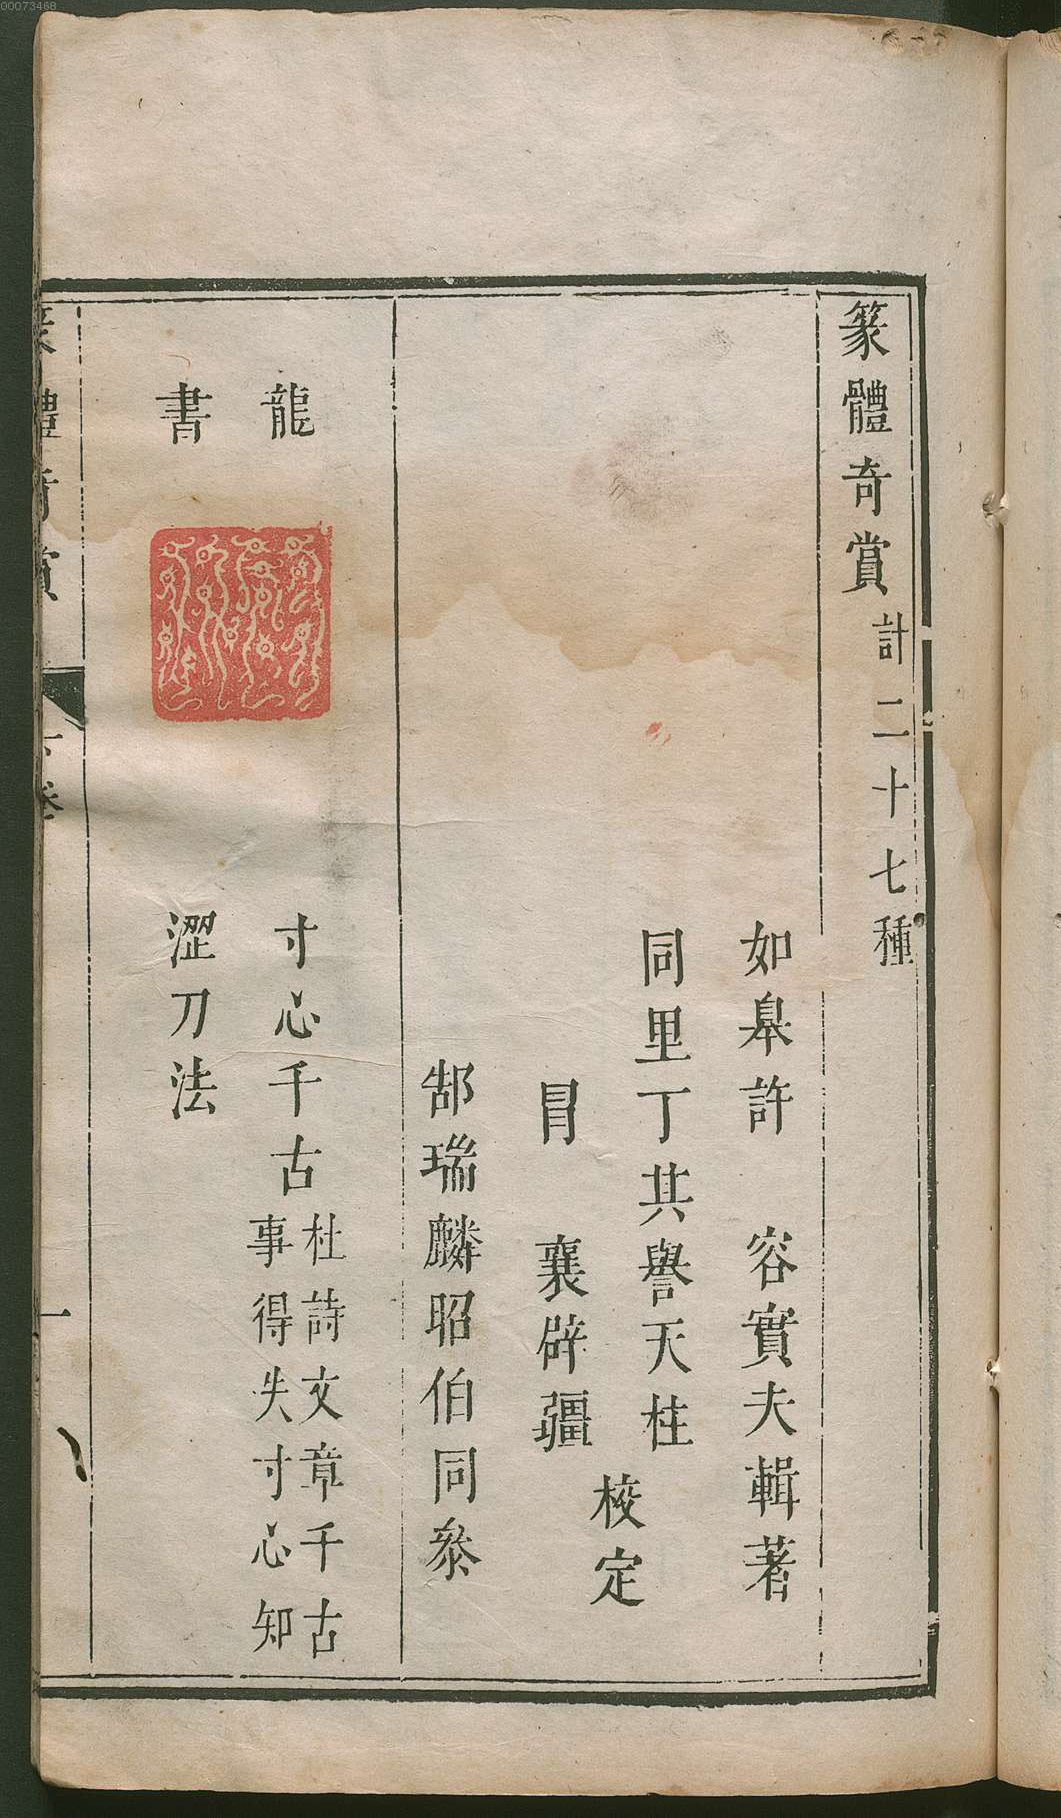 00073468
篆體奇賞計二十七種
如臯許 容實夫輯著
同里丁其譽天柱
冒 襄辟疆
校定
郜瑞麟昭伯同叅
龍
書
寸心千古杜詩文章千古
事得失寸心知
澀刀法
篆體奇賞 下卷 一